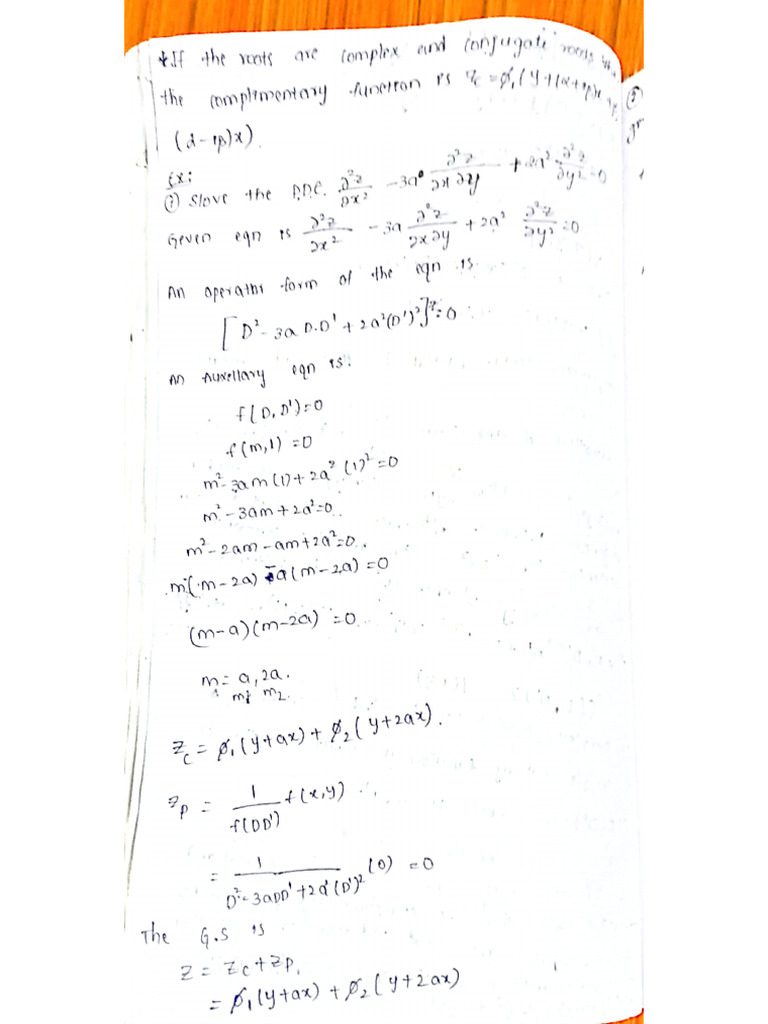 *If the roots are complex and conjugate roots
the complimentary function is Zc = φ₁(y+(α+iβ)x
(α-iβ)x).
Ex:
① Slove the P.D.E. ∂²z/∂x² - 3a ∂²z/∂x∂y + 2a² ∂²z/∂y² = 0
Geven eqn is ∂²z/∂x² - 3a ∂²z/∂x∂y + 2a² ∂²z/∂y² = 0
An operator form of the eqn is
[D² - 3a D.D' + 2a²(D')²]z = 0
An Auxellary eqn is.
f(D, D') = 0
f(m,1) = 0
m² - 3am(1) + 2a²(1)² = 0
m² - 3am + 2a² = 0.
m² - 2am - am + 2a² = 0.
m(m-2a) - a(m-2a) = 0
(m-a)(m-2a) = 0
m = a, 2a.
m₁ m₂.
Zc = φ₁(y+ax) + φ₂(y+2ax).
Zp = 1/f(DD') f(x,y)
= 1/D²-3aDD'+2a²(D')² (0) = 0
The G.S is
Z = Zc + Zp.
= φ₁(y+ax) + φ₂(y+2ax)